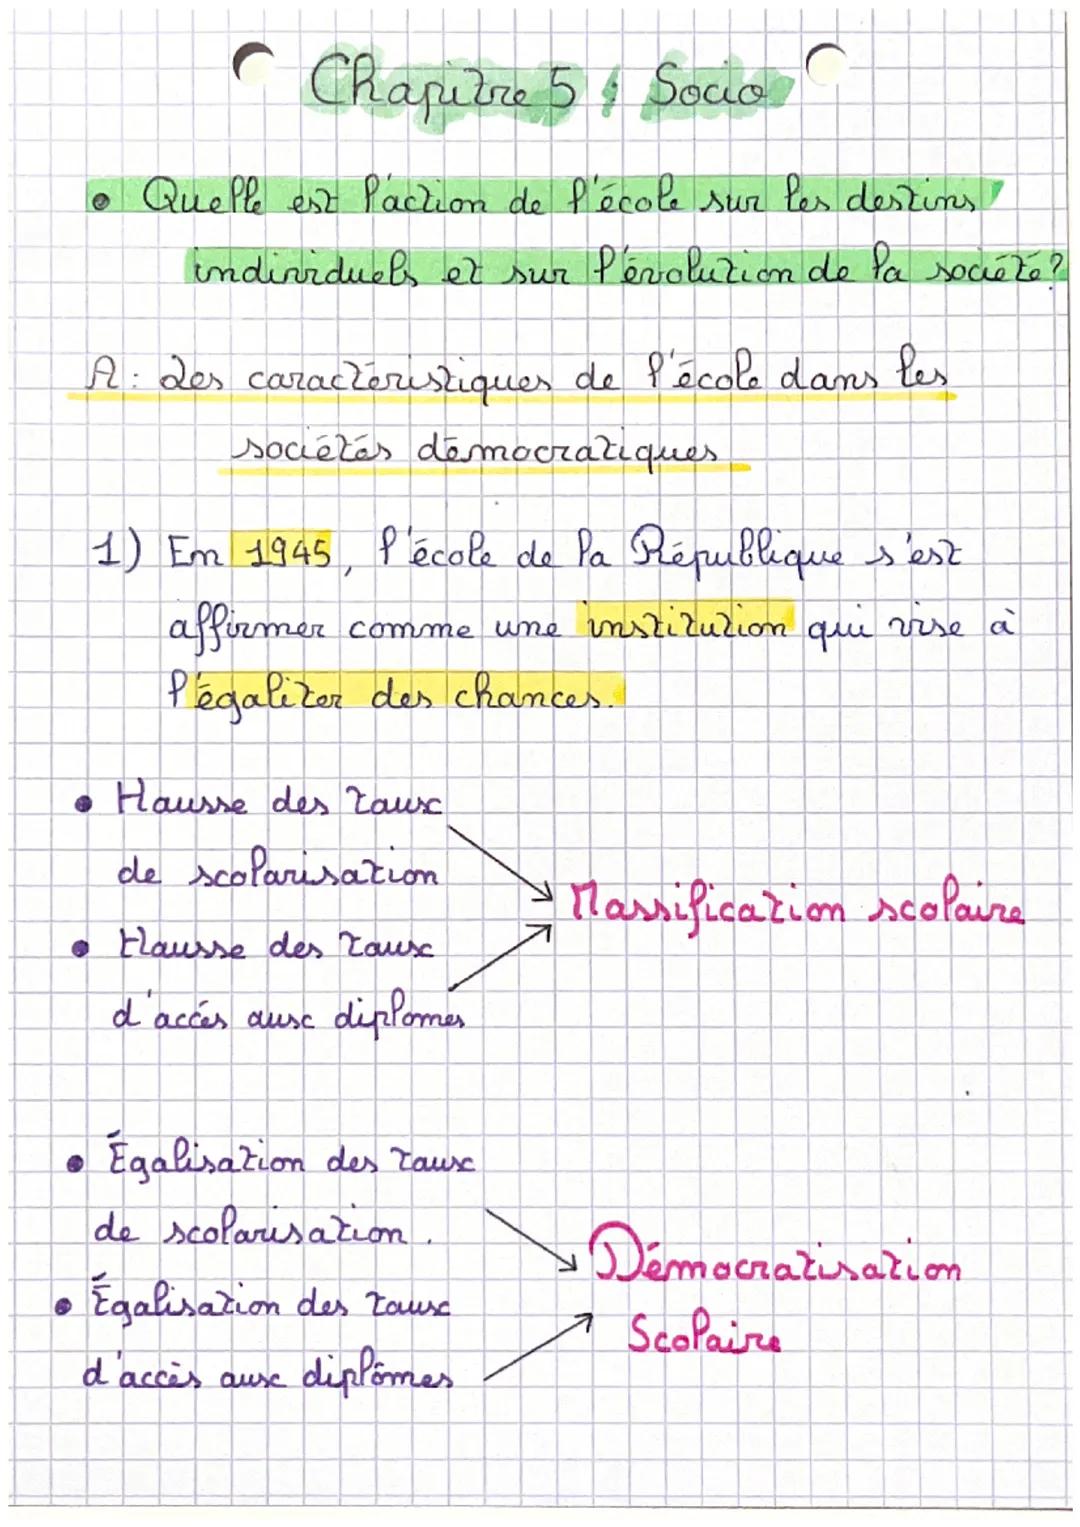 Chapitre 5 : Socio
• Quelle est l'action de l'école sur les destins
individuels et sur l'évolution de la société?
A: Les caractéristiques de l'école dans les
sociétés démocratiques
1) En 1945, l'école de la République s'est
affirmer comme une institution qui vise à
l'égaliter des chances.
• Hausse des taux
de scolarisation
Massification scolaire
• Hausse des taux
d'accés aux diplomes
• Égalisation des taux
de scolarisation.
Démocratisation
Scolaire
• Égalisation des taux
d'accès aux diplômes